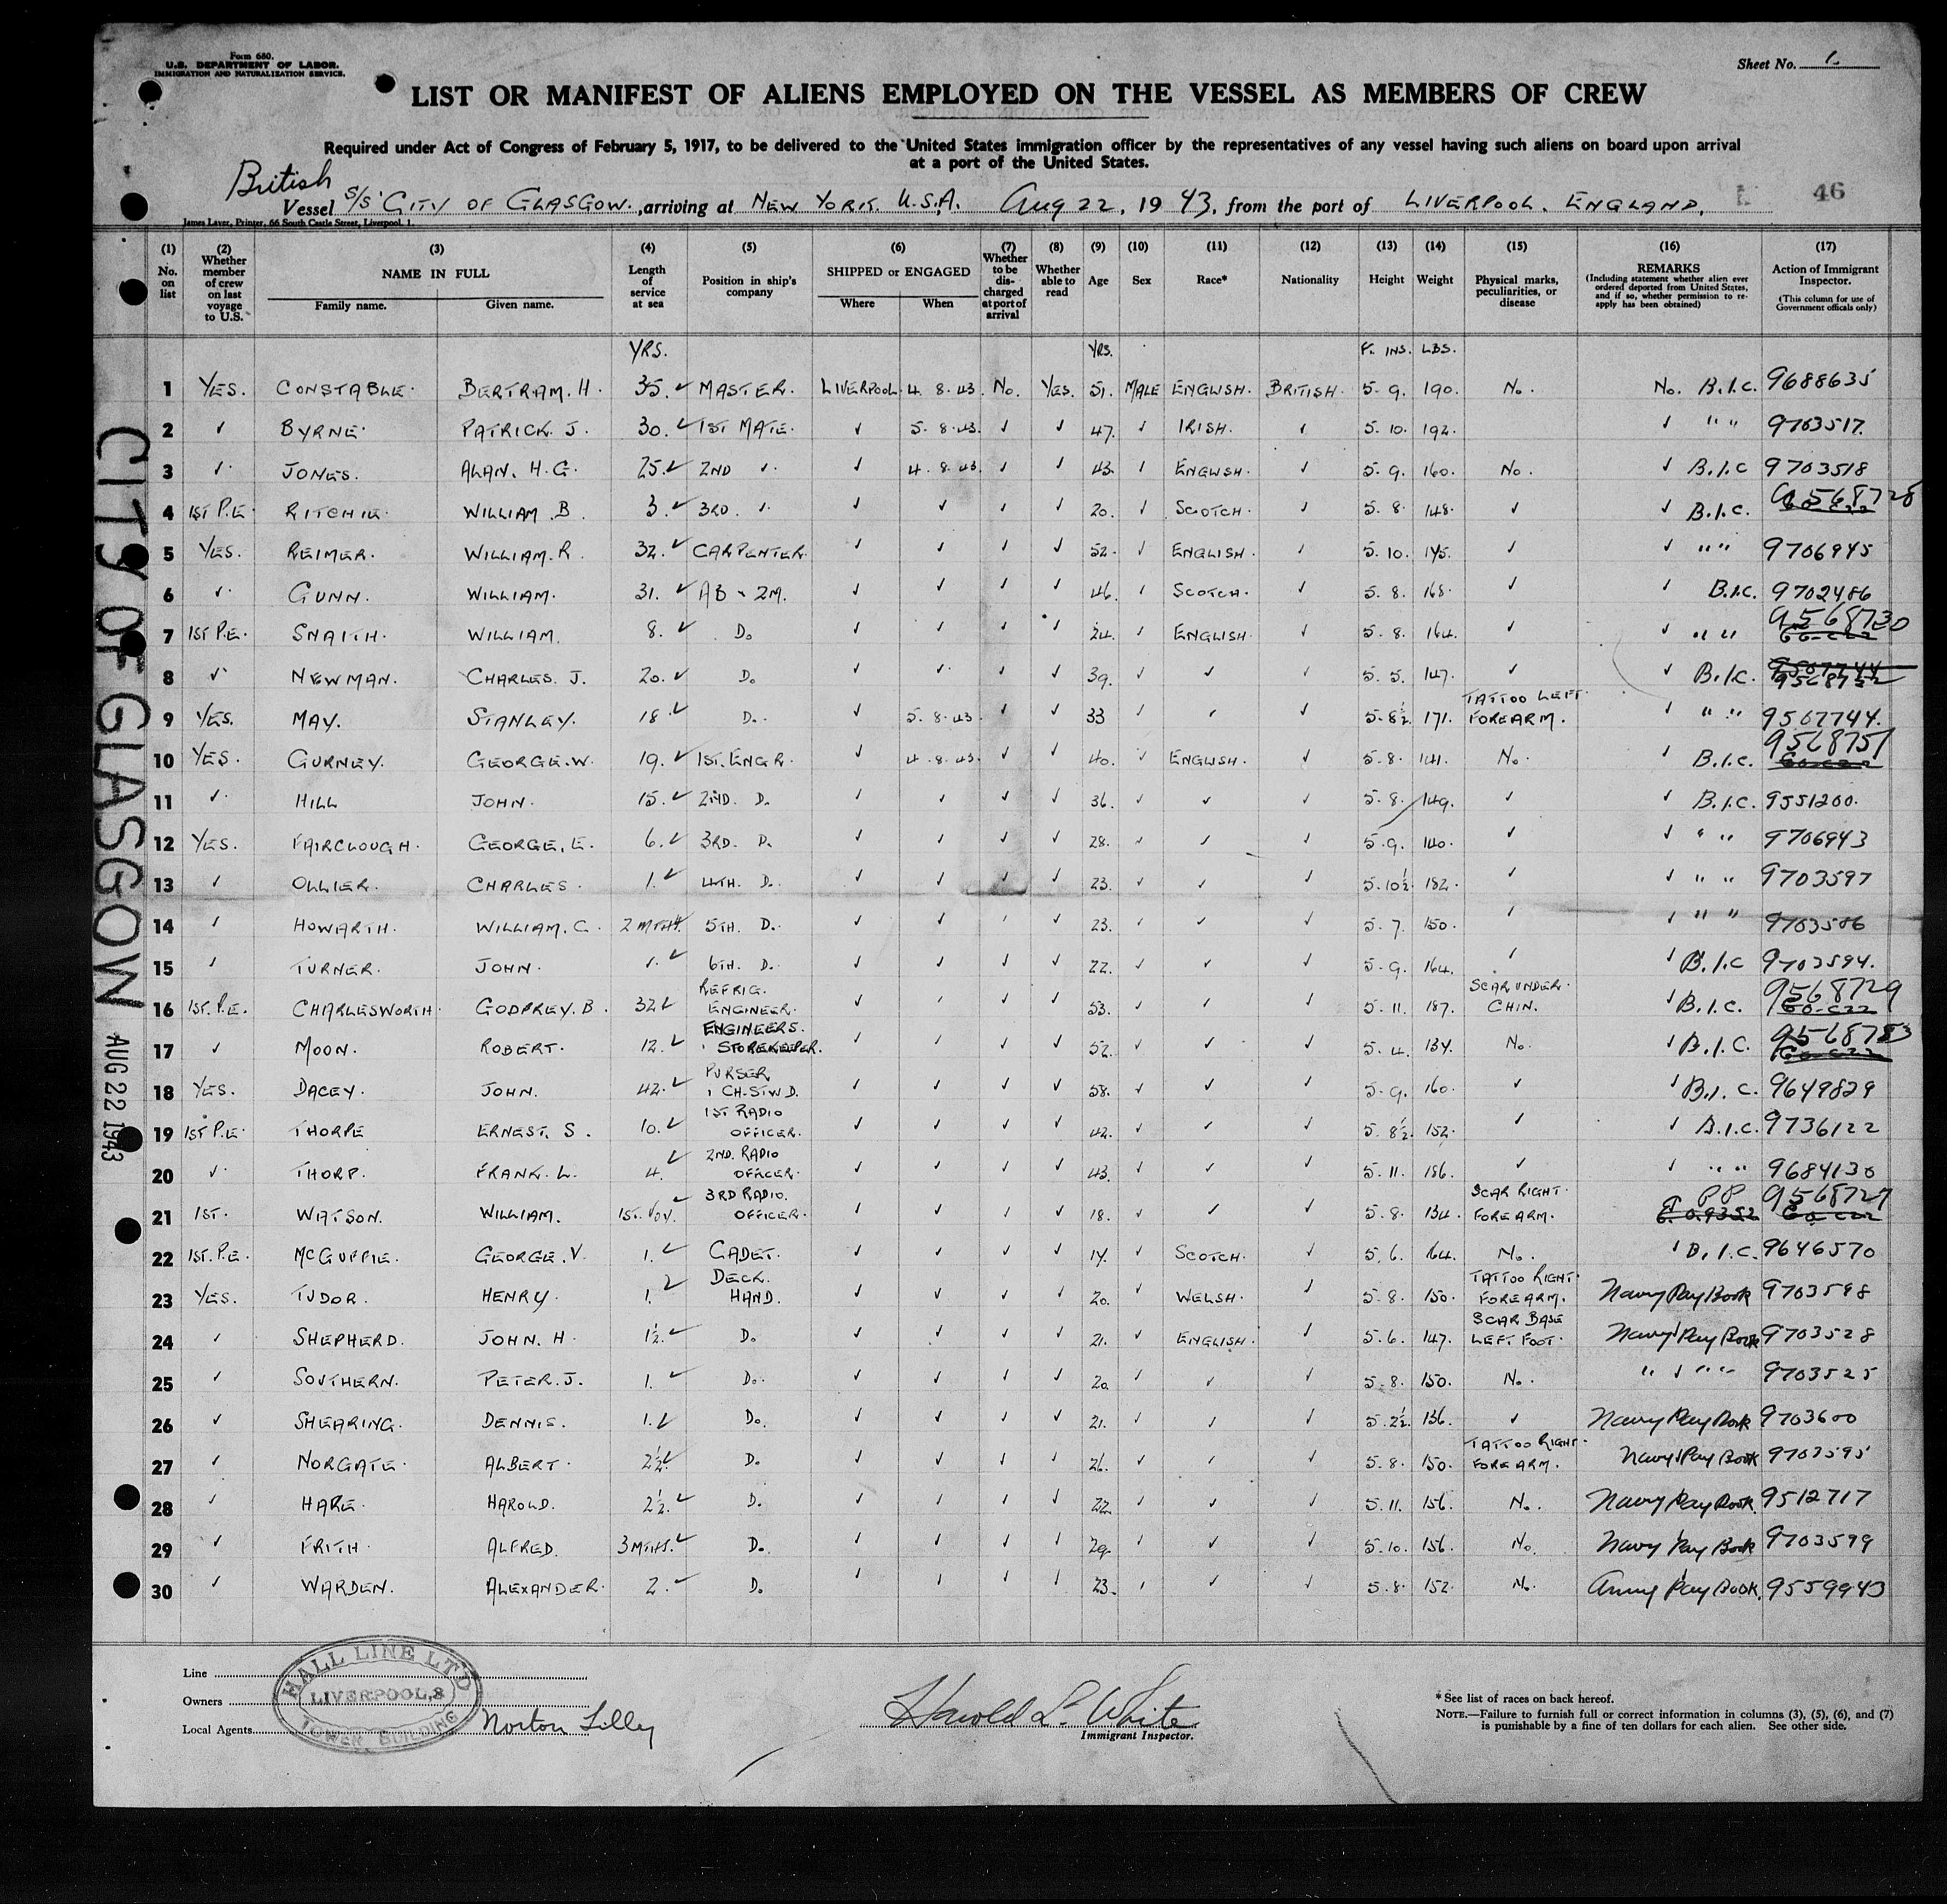 Form 680.
U.S. DEPARTMENT OF LABOR.
IMMIGRATION AND NATURALIZATION SERVICE.
Sheet No.
LIST OR MANIFEST OF ALIENS EMPLOYED ON THE VESSEL AS MEMBERS OF CREW
Required under Act of Congress of February 5, 1917, to be delivered to the United States immigration officer by the representatives of any vessel having such aliens on board upon arrival
at a port of the United States.
British
Vessel S/S CITY OF GLASGOW., arriving at NEW YORK. U.S.A. Aug 22, 1943, from the port of LIVERPOOL. ENGLAND, 46
James Laver, Printer, 66 South Castle Street, Liverpool. 1.
(1) No. on list (2) Whether member of crew on last voyage to U.S. (3) NAME IN FULL Family name. Given name. (4) Length of service at sea (5) Position in ship's company (6) SHIPPED or ENGAGED Where When (7) Whether to be discharged at port of arrival (8) Whether able to read (9) Age (10) Sex (11) Race* (12) Nationality (13) Height (14) Weight (15) Physical marks, peculiarities, or disease (16) REMARKS (Including statement whether alien ever ordered deported from United States, and if so, whether permission to re-apply has been obtained) (17) Action of Immigrant Inspector. (This column for use of Government officials only)
YRS. YRS. F. INS. LBS.
1 YES. CONSTABLE. BERTRAM. H. 35. ✓ MASTER. LIVERPOOL. 4. 8. 43. No. YES. 51. MALE ENGLISH. BRITISH. 5. 9. 190. No. No. B.I.C. 9688635
2 ✓ BYRNE. PATRICK. J. 30. ✓ 1ST MATE. ✓ 5. 8. 43. ✓ ✓ 47. ✓ IRISH. ✓ 5. 10. 192. ✓ " " 9703517.
3 ✓ JONES. ALAN. H. G. 25. ✓ 2ND ✓ ✓ 4. 8. 43. ✓ ✓ 43. ✓ ENGLISH. ✓ 5. 9. 160. No. ✓ B.I.C 9703518
4 1ST P.E. RITCHIE. WILLIAM. B. 3. ✓ 3RD. ✓ ✓ ✓ ✓ ✓ 20. ✓ SCOTCH. ✓ 5. 8. 148. ✓ ✓ B.I.C. 9568728
5 YES. REIMER. WILLIAM. R. 32. ✓ CARPENTER. ✓ ✓ ✓ ✓ 52. ✓ ENGLISH. ✓ 5. 10. 145. ✓ ✓ " " 9706945
6 ✓ GUNN. WILLIAM. 31. ✓ AB ✓ ✓ ✓ ✓ 46. ✓ SCOTCH. ✓ 5. 8. 168. ✓ ✓ B.I.C. 9702486
7 1ST P.E. SNAITH. WILLIAM. 8. ✓ Do ✓ ✓ ✓ ✓ 24. ✓ ENGLISH. ✓ 5. 8. 164. ✓ ✓ " " 9568730
8 ✓ NEWMAN. CHARLES. J. 20. ✓ Do ✓ ✓ ✓ ✓ 39. ✓ ✓ ✓ 5. 5. 147. ✓ ✓ B.I.C.
9 YES. MAY. STANLEY. 18. ✓ Do. ✓ 5. 8. 43. ✓ ✓ 33 ✓ ✓ ✓ 5. 8½. 171. TATTOO LEFT FOREARM. ✓ " " 9567744.
10 YES. GURNEY. GEORGE. W. 19. ✓ 1ST. ENGR. ✓ 4. 8. 43. ✓ ✓ 40. ✓ ENGLISH. ✓ 5. 8. 141. No. ✓ B.I.C. 9568751
11 ✓ HILL JOHN. 15. ✓ 2ND. Do. ✓ ✓ ✓ ✓ 36. ✓ ✓ ✓ 5. 8. 149. ✓ ✓ B.I.C. 9551200.
12 YES. FAIRCLOUGH. GEORGE. E. 6. ✓ 3RD. Do. ✓ ✓ ✓ ✓ 28. ✓ ✓ ✓ 5. 9. 140. ✓ ✓ " " 9706943
13 ✓ OLLIER. CHARLES. 1. ✓ 4TH. Do. ✓ ✓ ✓ ✓ 23. ✓ ✓ ✓ 5. 10½. 182. ✓ ✓ " " 9703597
14 ✓ HOWARTH. WILLIAM. C. 2 MTHS. 5TH. Do. ✓ ✓ ✓ ✓ 23. ✓ ✓ ✓ 5. 7. 150. ✓ ✓ " "
15 ✓ TURNER. JOHN. 1. ✓ 6TH. Do. ✓ ✓ ✓ ✓ 22. ✓ ✓ ✓ 5. 9. 164. ✓ ✓ B.I.C 9703594.
16 1ST. P.E. CHARLESWORTH. GODFREY. B. 32 ✓ REFRIG. ENGINEER. ✓ ✓ ✓ ✓ 53. ✓ ✓ ✓ 5. 11. 187. SCAR UNDER CHIN. ✓ B.I.C. 9568729
17 ✓ MOON. ROBERT. 12. ✓ ENGINEERS. STOREKEEPER. ✓ ✓ ✓ ✓ 52. ✓ ✓ ✓ 5. 4. 134. No. ✓ B.I.C.
18 YES. DACEY. JOHN. 42. ✓ PURSER CH. STWD. ✓ ✓ ✓ ✓ 58. ✓ ✓ ✓ 5. 9. 160. ✓ ✓ B.I.C. 9649829
19 1ST P.E. THORPE ERNEST. S. 10. ✓ 1ST RADIO OFFICER. ✓ ✓ ✓ ✓ 42. ✓ ✓ ✓ 5. 8½. 152. ✓ ✓ B.I.C. 9736122
20 ✓ THORP. FRANK. L. 4. ✓ 2ND. RADIO OFFICER. ✓ ✓ ✓ ✓ 43. ✓ ✓ ✓ 5. 11. 186. ✓ ✓ " " 9684130
21 1ST. WATSON. WILLIAM. 1ST. VOY. ✓ 3RD RADIO. OFFICER. ✓ ✓ ✓ ✓ 18. ✓ ✓ ✓ 5. 8. 134. SCAR RIGHT. FOREARM. PP 9568727
22 1ST. P.E. McGUFFIE. GEORGE. V. 1. ✓ CADET. ✓ ✓ ✓ ✓ 17. ✓ SCOTCH. ✓ 5. 6. 164. No. ✓ B.I.C. 9646570
23 YES. TUDOR. HENRY. 1. DECK. HAND. ✓ ✓ ✓ ✓ 20. ✓ WELSH. ✓ 5. 8. 150. TATTOO RIGHT. FOREARM. Navy Pay Book 9703598
24 ✓ SHEPHERD. JOHN. H. 1½. ✓ Do. ✓ ✓ ✓ ✓ 21. ✓ ENGLISH. ✓ 5. 6. 147. SCAR BASE LEFT FOOT. Navy Pay Book 9703528
25 ✓ SOUTHERN. PETER. J. 1. ✓ Do. ✓ ✓ ✓ ✓ 20 ✓ ✓ ✓ 5. 8. 150. No. " ✓ " " 9703525
26 ✓ SHEARING. DENNIS. 1. ✓ Do. ✓ ✓ ✓ ✓ 21. ✓ ✓ ✓ 5. 2½. 136. ✓ Navy Pay Book 9703600
27 ✓ NORGATE. ALBERT. 2½ ✓ Do. ✓ ✓ ✓ ✓ 26. ✓ ✓ ✓ 5. 8. 150. TATTOO RIGHT. FOREARM. Navy Pay Book 9703595
28 ✓ HARE. HAROLD. 2½. ✓ Do. ✓ ✓ ✓ ✓ 22. ✓ ✓ ✓ 5. 11. 156. No. Navy Pay Book. 9512717
29 ✓ FRITH. ALFRED. 3 MTHS. ✓ Do. ✓ ✓ ✓ ✓ 29. ✓ ✓ ✓ 5. 10. 156. No. Navy Pay Book 9703599
30 ✓ WARDEN. ALEXANDER. 2. ✓ Do. ✓ ✓ ✓ ✓ 23. ✓ ✓ ✓ 5. 8. 152. No. Army Pay Book. 9559943
CITY OF GLASGOW AUG 22 1943
Line
Owners
Local Agents Norton Lilley
HALL LINE LTD
LIVERPOOL, 3
TOWER BUILDING
Harold L. White
Immigrant Inspector.
* See list of races on back hereof.
NOTE.—Failure to furnish full or correct information in columns (3), (5), (6), and (7)
is punishable by a fine of ten dollars for each alien. See other side.